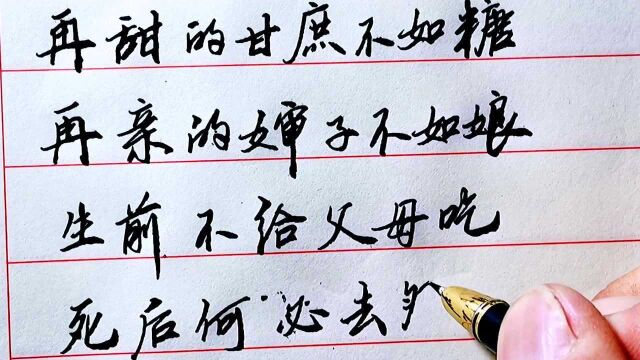 再甜的甘庶不如糖
再亲的婶子不如娘
生前不给父母吃
死后何必去